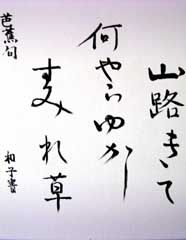 山路きて
何やらゆかし
すみれ草
芭蕉句
和子書